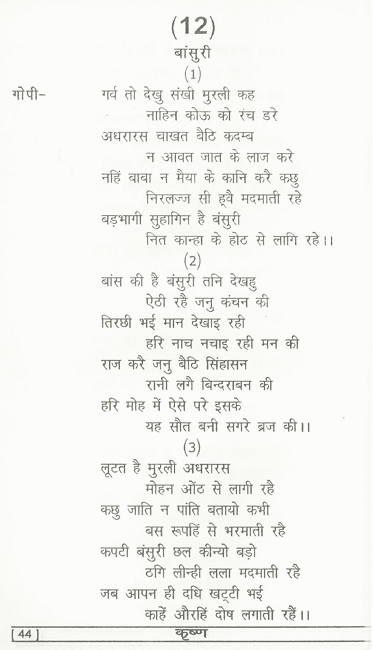 (12)
बांसुरी
(1)
गोपी- गर्व तो देखु संखी मुरली कह
नाहिन कोऊ को रंच डरे
अधरारस चाखत बैठि कदम्ब
न आवत जात के लाज करे
नहिं बाबा न मैया के कानि करै कछु
निरलज्ज सी ह्वै मदमाती रहे
बड़भागी सुहागिन है बंसुरी
नित कान्हा के होठ से लागि रहे।।
(2)
बांस की है बंसुरी तनि देखहु
ऐठी रहै जनु कंचन की
तिरछी भई मान देखाइ रही
हरि नाच नचाइ रही मन की
राज करै जनु बैठि सिंहासन
रानी लगै बिन्दराबन की
हरि मोह में ऐसे परे इसके
यह सौत बनी सगरे ब्रज की।।
(3)
लूटत है मुरली अधरारस
मोहन ओंठ से लागी रहै
कछु जाति न पांति बतायो कभी
बस रूपहिं से भरमाती रहै
कपटी बंसुरी छल कीन्यो बड़ो
ठगि लीन्ही लला मदमाती रहै
जब आपन ही दधि खट्टी भई
काहें औरहिं दोष लगाती रहैं।।
[ 44 ] कृष्ण